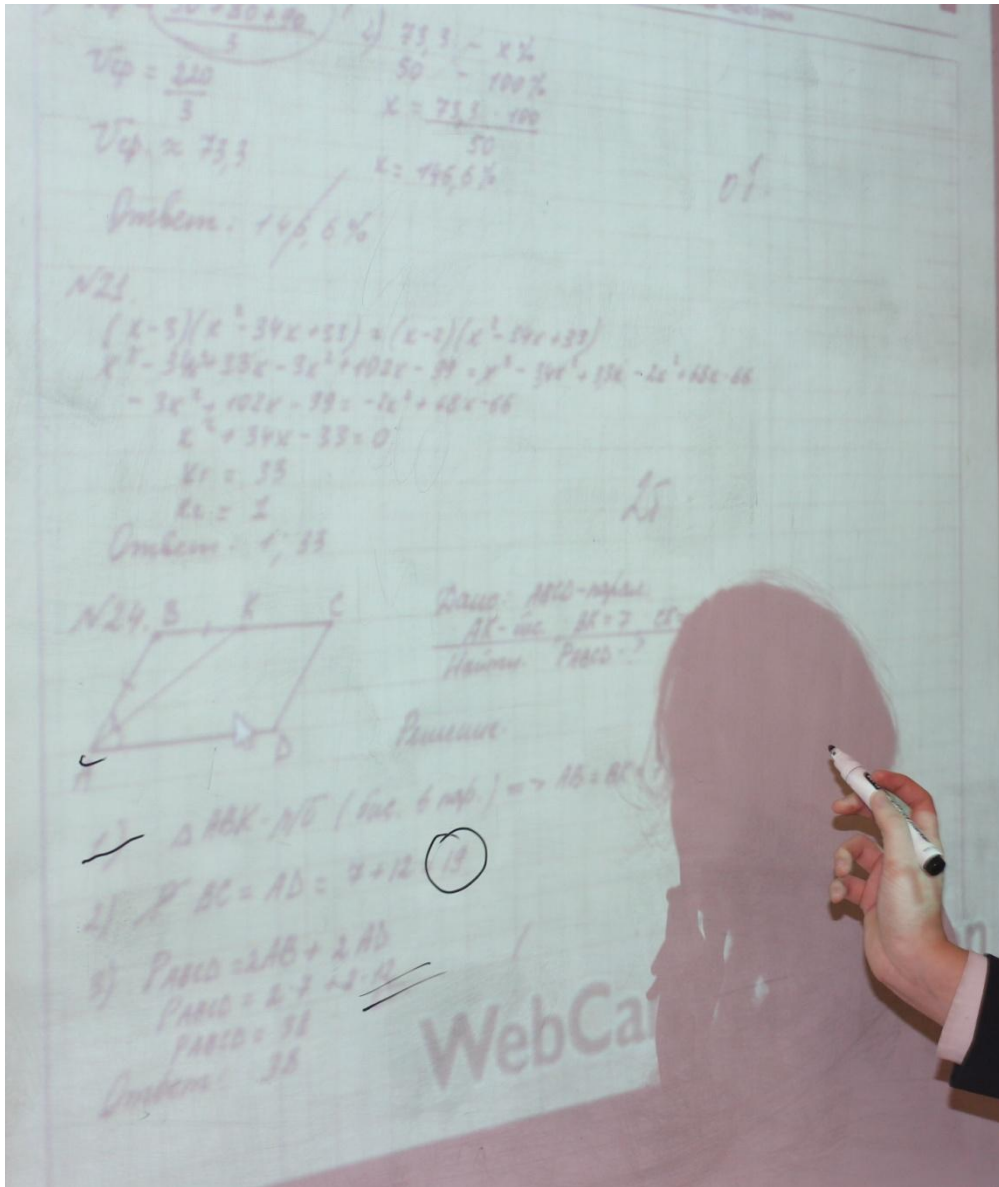 50 + 80 + 90
3
Vср = 220
3
Vср. ≈ 73,3
Ответ: 146,6%
2) 73,3 - x%
50 - 100%
x = 73,3 · 100
50
x = 146,6%
0б
N21
(x-3)(x²-34x+33) = (x-2)(x²-34x+33)
x³ - 34x²+33x - 3x²+102x - 99 = x³ - 34x²+33x - 2x²+68x-66
- 3x² + 102x - 99 = -2x² + 68x - 66
x² + 34x - 33 = 0
x1 = 33
x2 = 1
Ответ: 1; 33
2б
N24.
B K C
A D
Дано: ABCD - парал.
AK - бис.
Найти: PABCD - ?
Решение.
1) △ ABK - р/б (бис. в пар.) => AB = BK =
2) BC = AD = 7 + 12 19
3) PABCD = 2AB + 2AD
PABCD = 2·7 + 2·12
PABCD = 38
Ответ: 38